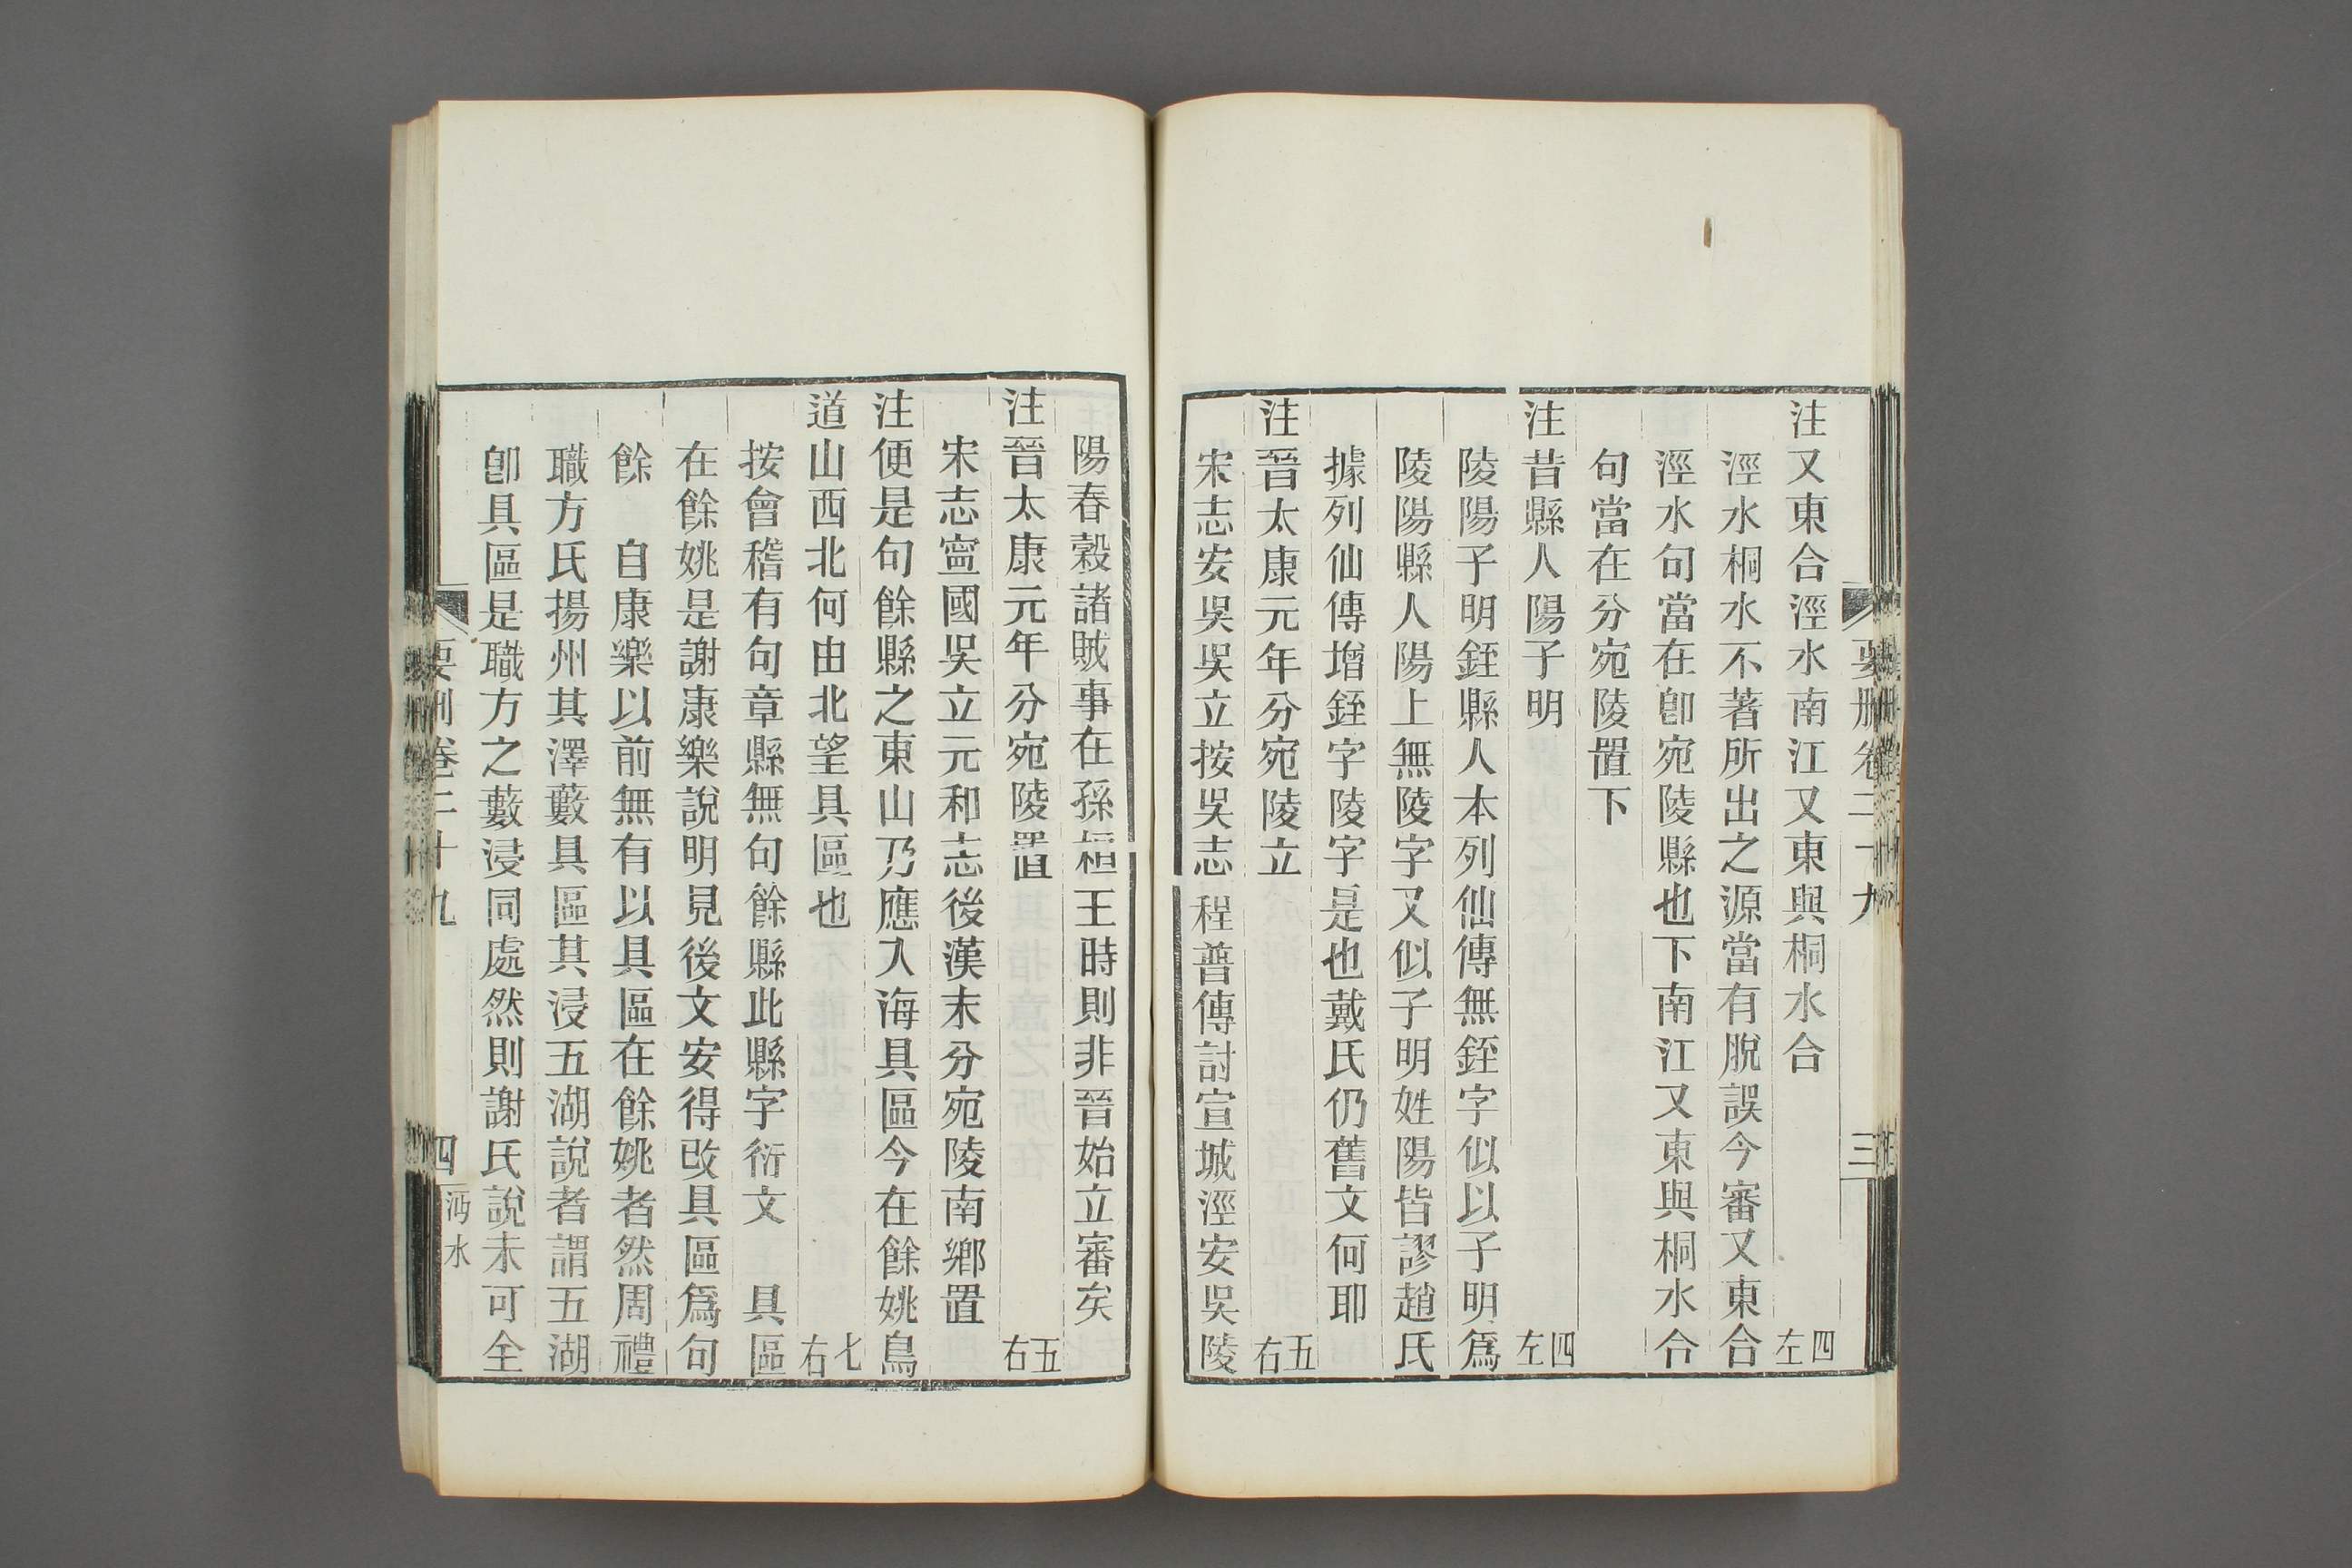 要删卷二十九 三
注又東合涇水南江又東與桐水合 四左
涇水桐水不著所出之源當有脫誤今審又東合
涇水句當在卽宛陵縣也下南江又東與桐水合
句當在分宛陵置下
注昔縣人陽子明 四左
陵陽子明銍縣人本列仙傳無銍字似以子明爲
陵陽縣人陽上無陵字又似子明姓陽皆謬趙氏
據列仙傳增銍字陵字是也戴氏仍舊文何耶
注晉太康元年分宛陵立 五右
宋志安吳吳立按吳志程普傳討宣城涇安吳陵
陽春穀諸賊事在孫桓王時則非晉始立審矣
注晉太康元年分宛陵置 五右
宋志寍國吳立元和志後漢末分宛陵南鄉置
注便是句餘縣之東山乃應入海具區今在餘姚鳥
道山西北何由北望具區也 七右
按會稽有句章縣無句餘縣此縣字衍文 具區
在餘姚是謝康樂說明見後文安得改具區爲句
餘 自康樂以前無有以具區在餘姚者然周禮
職方氏揚州其澤藪具區其浸五湖說者謂五湖
卽具區是職方之藪浸同處然則謝氏說未可全
要删卷二十九 四 沔水